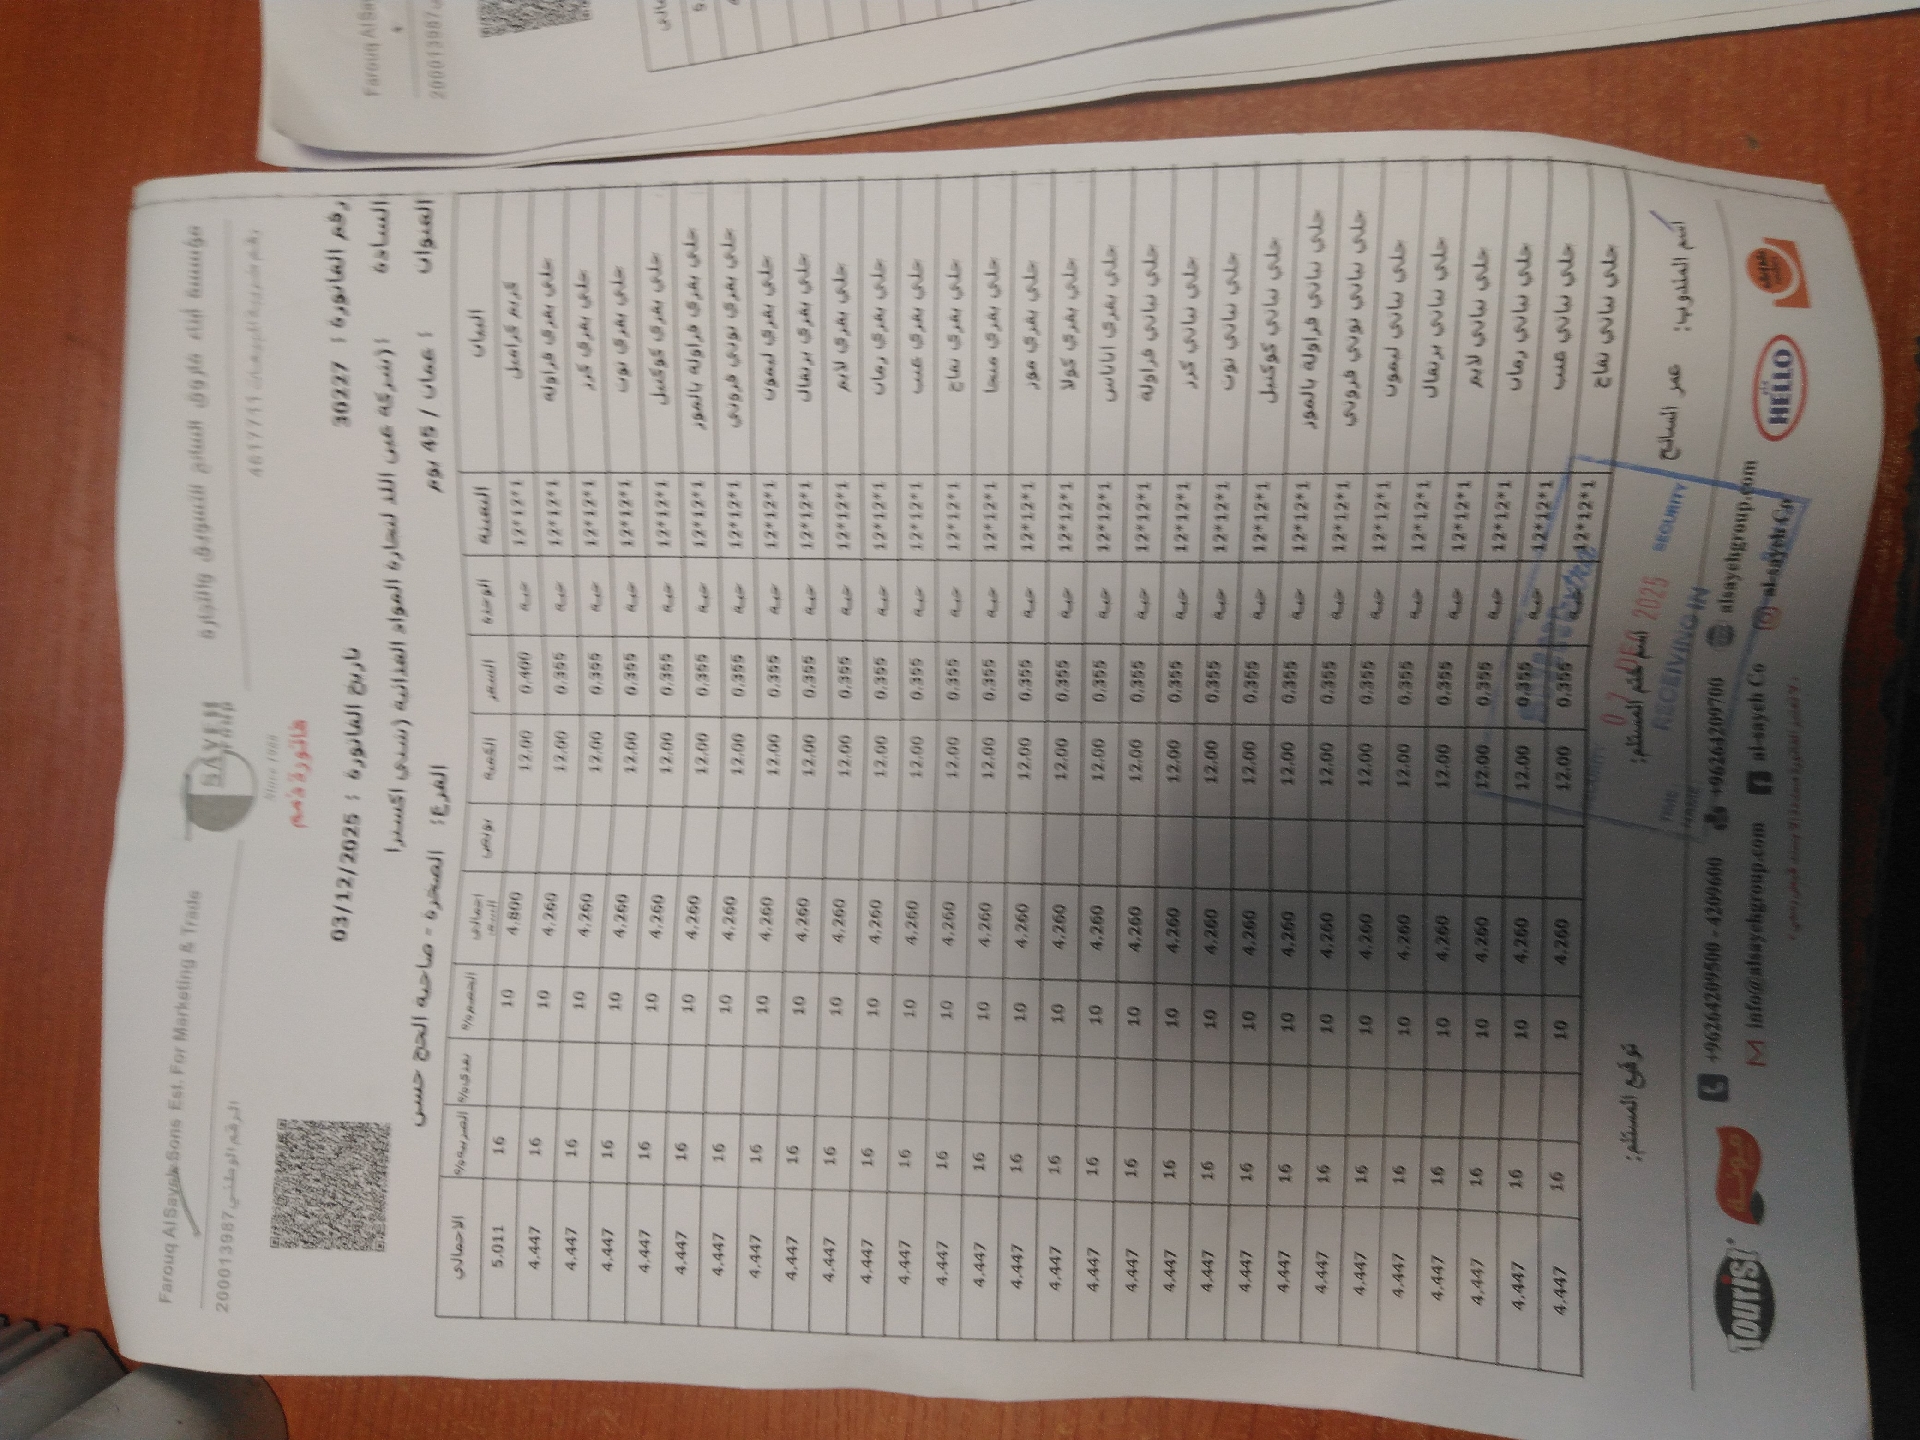 مؤسسة أبناء فاروق السايح للتسويق والتجارة
SAYEH
GROUP
Since 1988
Farouq Al Sayeh Sons Est. For Marketing & Trade
الرقم الوطني 200013987
فاتورة ذمم
رقم الفاتورة : 30227
تاريخ الفاتورة : 03/12/2025
السادة : (شركة عبد الله لتجارة المواد الغذائية (سي اكسترا
العنوان : عمان / 45 يوم
الفرع: الصخرة - صاحبه الحج حسن
البيان التعبئة الوحدة السعر الكمية بونص اجمالي السعر الخصم% نقدي% الضريبة% الاجمالي
كريم كراميل 12*12*1 حبة 0.400 12.00 4.800 10 16 5.011
حلى بقري فراولة 12*12*1 حبة 0.355 12.00 4.260 10 16 4.447
حلى بقري كرز 12*12*1 حبة 0.355 12.00 4.260 10 16 4.447
حلى بقري توت 12*12*1 حبة 0.355 12.00 4.260 10 16 4.447
حلى بقري كوكتيل 12*12*1 حبة 0.355 12.00 4.260 10 16 4.447
حلى بقري فراولة بالموز 12*12*1 حبة 0.355 12.00 4.260 10 16 4.447
حلى بقري توتي فروتي 12*12*1 حبة 0.355 12.00 4.260 10 16 4.447
حلى بقري ليمون 12*12*1 حبة 0.355 12.00 4.260 10 16 4.447
حلى بقري برتقال 12*12*1 حبة 0.355 12.00 4.260 10 16 4.447
حلى بقري لايم 12*12*1 حبة 0.355 12.00 4.260 10 16 4.447
حلى بقري رمان 12*12*1 حبة 0.355 12.00 4.260 10 16 4.447
حلى بقري عنب 12*12*1 حبة 0.355 12.00 4.260 10 16 4.447
حلى بقري تفاح 12*12*1 حبة 0.355 12.00 4.260 10 16 4.447
حلى بقري منجا 12*12*1 حبة 0.355 12.00 4.260 10 16 4.447
حلى بقري موز 12*12*1 حبة 0.355 12.00 4.260 10 16 4.447
حلى بقري كولا 12*12*1 حبة 0.355 12.00 4.260 10 16 4.447
حلى بقري اناناس 12*12*1 حبة 0.355 12.00 4.260 10 16 4.447
حلى نباتي فراولة 12*12*1 حبة 0.355 12.00 4.260 10 16 4.447
حلى نباتي كرز 12*12*1 حبة 0.355 12.00 4.260 10 16 4.447
حلى نباتي توت 12*12*1 حبة 0.355 12.00 4.260 10 16 4.447
حلى نباتي كوكتيل 12*12*1 حبة 0.355 12.00 4.260 10 16 4.447
حلى نباتي فراولة بالموز 12*12*1 حبة 0.355 12.00 4.260 10 16 4.447
حلى نباتي توتي فروتي 12*12*1 حبة 0.355 12.00 4.260 10 16 4.447
حلى نباتي ليمون 12*12*1 حبة 0.355 12.00 4.260 10 16 4.447
حلى نباتي برتقال 12*12*1 حبة 0.355 12.00 4.260 10 16 4.447
حلى نباتي لايم 12*12*1 حبة 0.355 12.00 4.260 10 16 4.447
حلى نباتي رمان 12*12*1 حبة 0.355 12.00 4.260 10 16 4.447
حلى نباتي عنب 12*12*1 حبة 0.355 12.00 4.260 10 16 4.447
حلى نباتي تفاح 12*12*1 حبة 0.355 12.00 4.260 10 16 4.447
اسم المندوب: عمر السايح
اسم المستلم:
توقيع المستلم:
DEC 2025
SECURITY
RECEIVING IN
TIME
NAME
+96264209500 - 4209600
+96264209700
alsayehgroup.com
info@alsayehgroup.com
al-sayeh Co
al-sayeh Co
Tourist
HELLO
Farouq Al Say
200013987